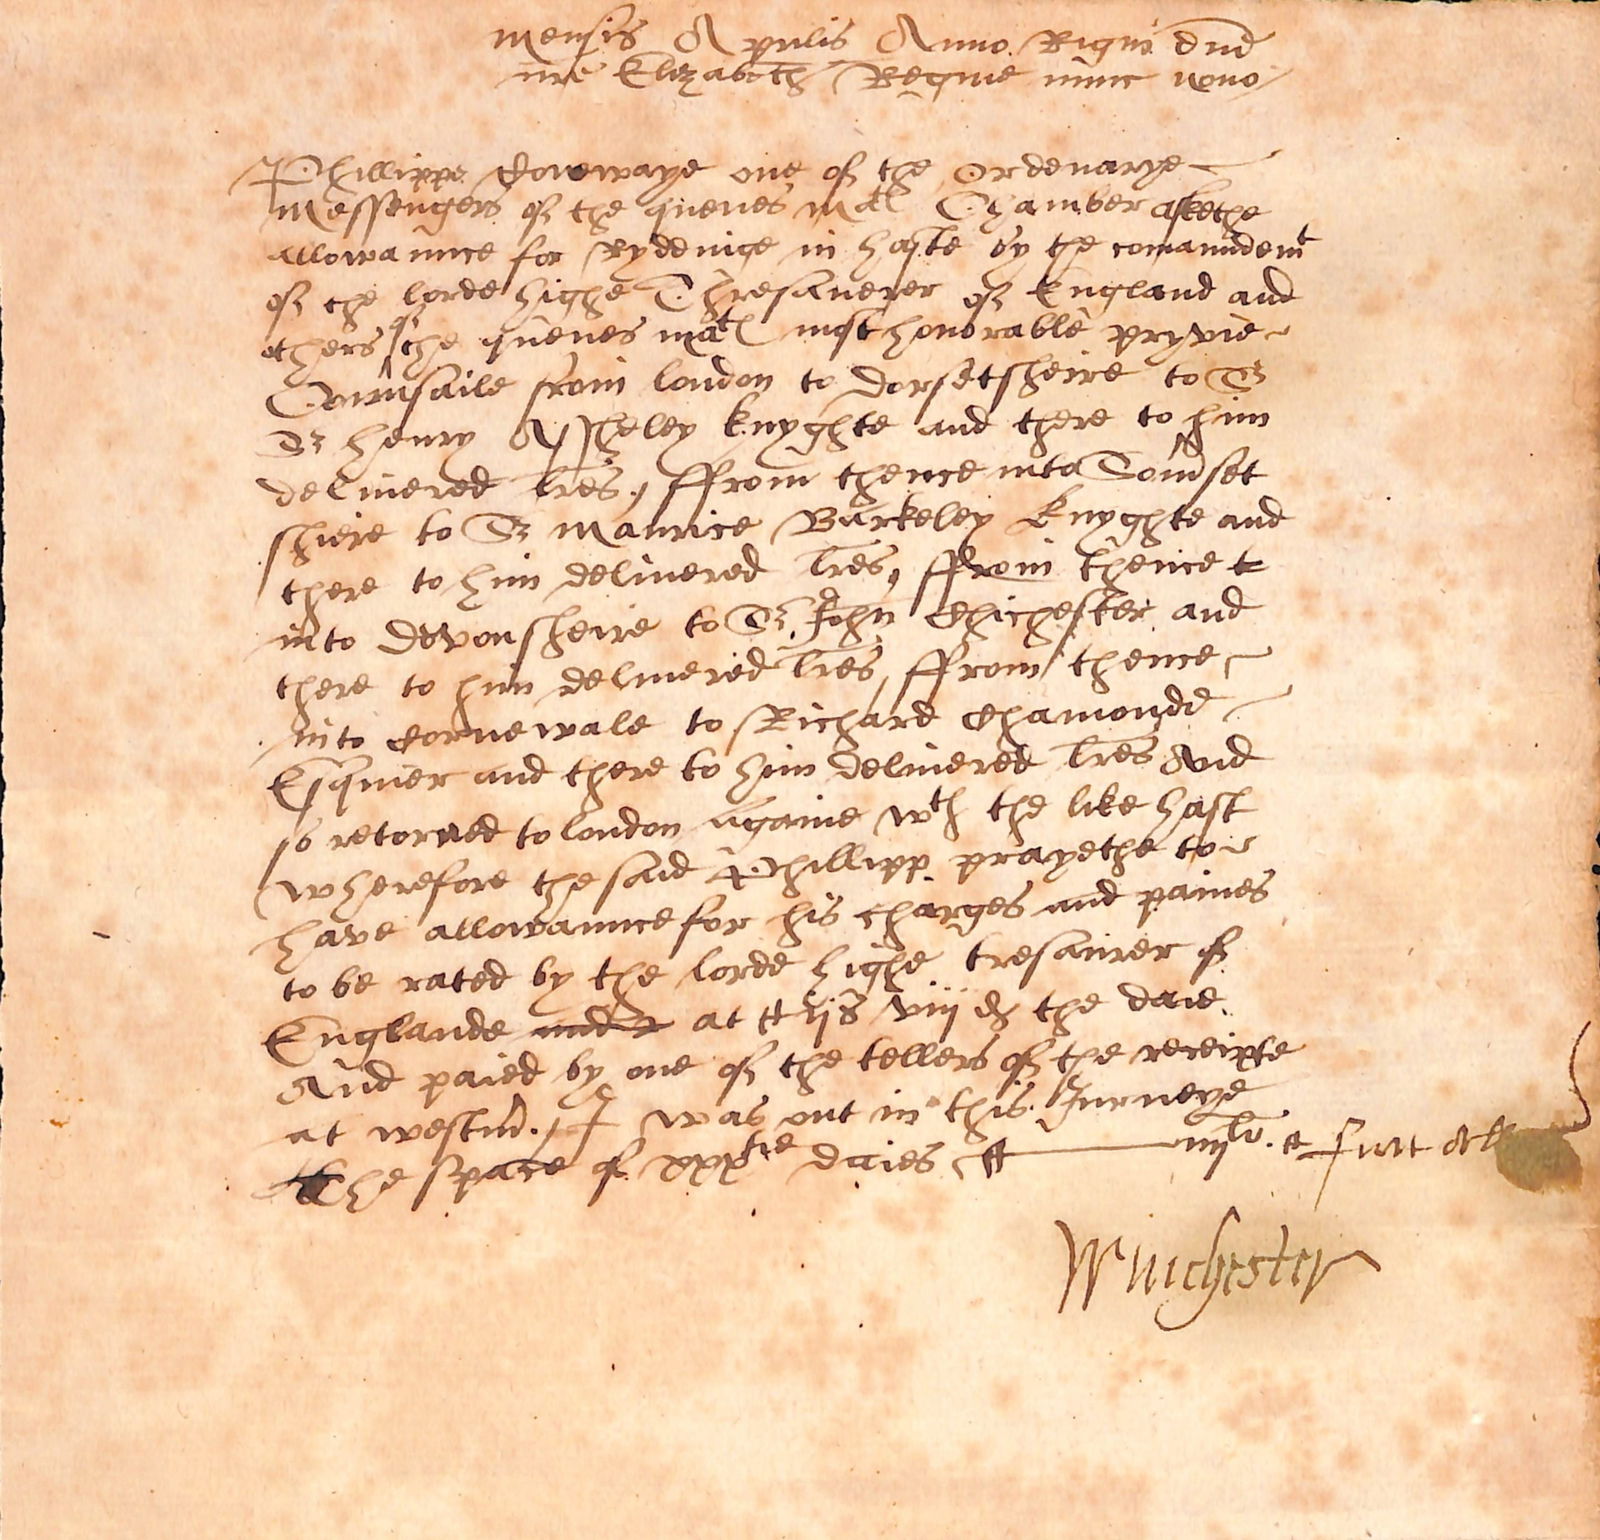 mensis Aprilis Anno Rigni dnē
nrē Elizabeth Regine nunc nono
Phillippe Conewaye one of the Ordenarye
Messengers of the quenes Matˢ Chamber askethe
allowaunce for Ryddinge in haste by the comaundemᵗ
of the lorde highe Thresaurer of England and
others of the quenes matˢ most honorable pryvie
Counsaile from london to dorsetsheire to Sʳ
Sʳ henry Assheley knyghte and there to him
delivered lres, ffrom thence into Somset
shiere to Sʳ Maurice Barkeley knyghte and
there to him delivered lres, ffrom thence
into devonsheire to Sʳ John Chichester and
there to him delivered lres, ffrom thence
into Cornewale to Richard Chamonde
Esquier and there to him delivered lres And
so retorned to london againe wᵗʰ the like hast
wherefore the said Phillipp prayethe to
have allowaunce for his charges and paines
to be rated by the lorde highe tresaurer of
Englande at ijs viij d the daie
And paied by one of the tellers of the receipte
at westm. I was out in this Jurneye
The space of daies
Winchester